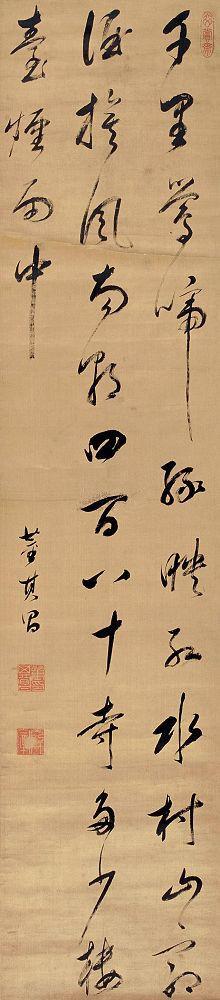 千里鶯啼綠映紅水村山郭
酒旗風南朝四百八十寺多少樓
臺煙雨中
董其昌